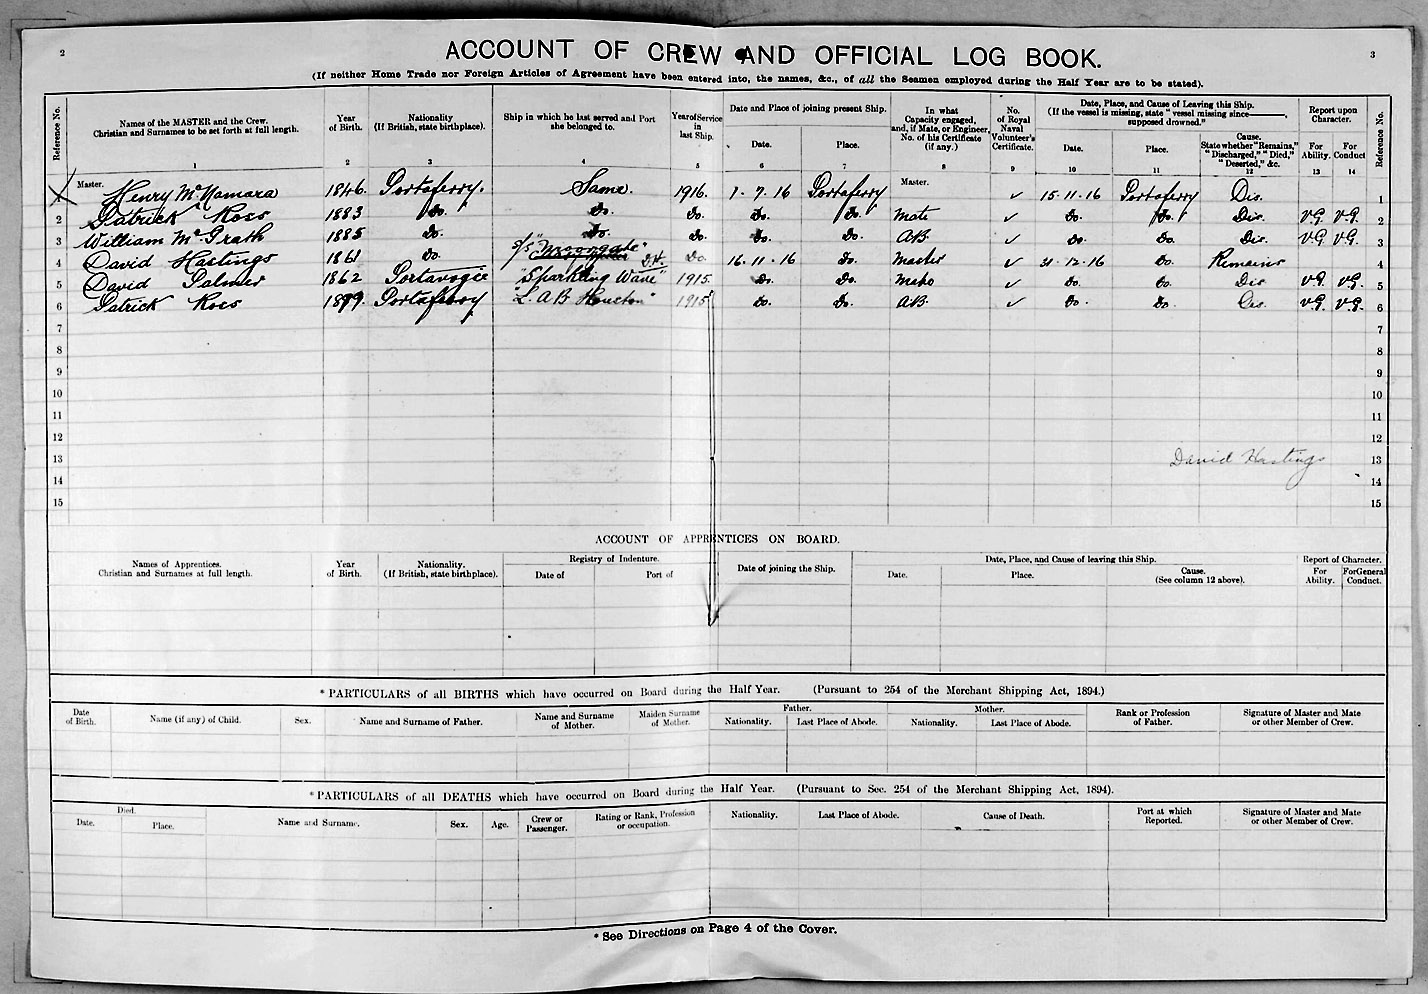 2
3
ACCOUNT OF CREW AND OFFICIAL LOG BOOK.
(If neither Home Trade nor Foreign Articles of Agreement have been entered into, the names, &c., of all the Seamen employed during the Half Year are to be stated).
Reference No. Names of the MASTER and the Crew. Christian and Surnames to be set forth at full length. Year of Birth. Nationality (If British, state birthplace). Ship in which he last served and Port she belonged to. Year of Service in last Ship. Date and Place of joining present Ship. Date. Place. In what Capacity engaged, and, if Mate, or Engineer, No. of his Certificate (if any). No. of Royal Naval Volunteer's Certificate. Date, Place, and Cause of Leaving this Ship. (If the vessel is missing, state "vessel missing since———, supposed drowned." Date. Place. Cause. State whether "Remains," "Discharged," "Died," "Deserted," &c. Report upon Character. For Ability. For Conduct Reference No.
1 2 3 4 5 6 7 8 9 10 11 12 13 14
1 Master. Henry McNamara 1846. Portaferry. Same. 1916. 1.7.16 Portaferry Master. ✓ 15.11.16 Portaferry Dis. 1
2 Patrick Ross 1883 Do. Do. Do. Do. Do. Mate ✓ Do. Do. Dis. V.G. V.G. 2
3 William McGrath 1885 Do. Do. Do. Do. Do. AB ✓ Do. Do. Dis. V.G. V.G. 3
4 David Hastings 1861 Do. S/S "Moorgate" D.H. Do. 16.11.16 Do. Master ✓ 31.12.16 Do. Remains 4
5 David Palmer 1862 Portavogie "Sparkling Wave" 1915. Do. Do. Mate ✓ Do. Do. Dis V.G. V.G. 5
6 Patrick Ross 1899. Portaferry "L. A B Houston" 1915 Do. Do. AB. ✓ Do. Do. Dis. V.G. V.G. 6
7 7
8 8
9 9
10 10
11 11
12 12
13 David Hastings 13
14 14
15 15
ACCOUNT OF APPRENTICES ON BOARD.
Names of Apprentices. Christian and Surnames at full length. Year of Birth. Nationality. (If British, state birthplace). Registry of Indenture. Date of Port of Date of joining the Ship. Date, Place, and Cause of leaving this Ship. Date. Place. Cause. (See column 12 above). Report of Character. For Ability. For General Conduct.
* PARTICULARS of all BIRTHS which have occurred on Board during the Half Year. (Pursuant to 254 of the Merchant Shipping Act, 1894.)
Date of Birth. Name (if any) of Child. Sex. Name and Surname of Father. Name and Surname of Mother. Maiden Surname of Mother. Father. Nationality. Last Place of Abode. Mother. Nationality. Last Place of Abode. Rank or Profession of Father. Signature of Master and Mate or other Member of Crew.
* PARTICULARS of all DEATHS which have occurred on Board during the Half Year. (Pursuant to Sec. 254 of the Merchant Shipping Act, 1894).
Died. Date. Place. Name and Surname. Sex. Age. Crew or Passenger. Rating or Rank, Profession or occupation. Nationality. Last Place of Abode. Cause of Death. Port at which Reported. Signature of Master and Mate or other Member of Crew.
* See Directions on Page 4 of the Cover.